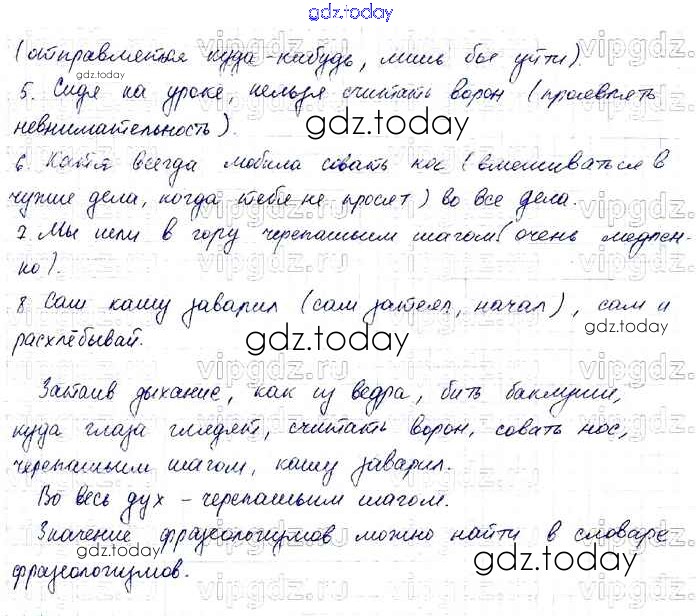 gdz.today
(отправиться куда-нибудь, лишь бы уйти).
5. Сидя на уроке, нельзя считать ворон (проявлять
невнимательность).
6. Катя всегда любила совать нос (вмешиваться в
чужие дела, когда тебя не просят) во все дела.
7. Мы шли в гору черепашьим шагом (очень медлен-
но).
8 Сам кашу заварил (сам затеял, начал), сам и
расхлёбывай.
Затаив дыхание, как из ведра, бить баклуши,
куда глаза глядят, считать ворон, совать нос,
черепашьим шагом, кашу заварил.
Во весь дух - черепашьим шагом.
Значение фразеологизмов можно найти в словаре
фразеологизмов.